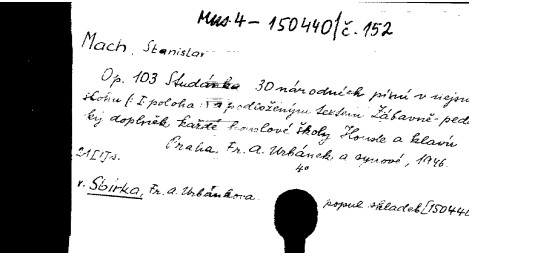 Mus. 4 - 150440/č. 152
Mach, Stanislav
Op. 103 Studánka 30 národních písní v nejsn
slohu /: I. poloha podloženým textem Zábavně-ped
ký doplněk každé houslové školy Housle a klavír
Praha, Fr. A. Urbánek a synové, 1946.
4°
v. Sbírka, Fr. A. Urbánkova popul skladeb [15044